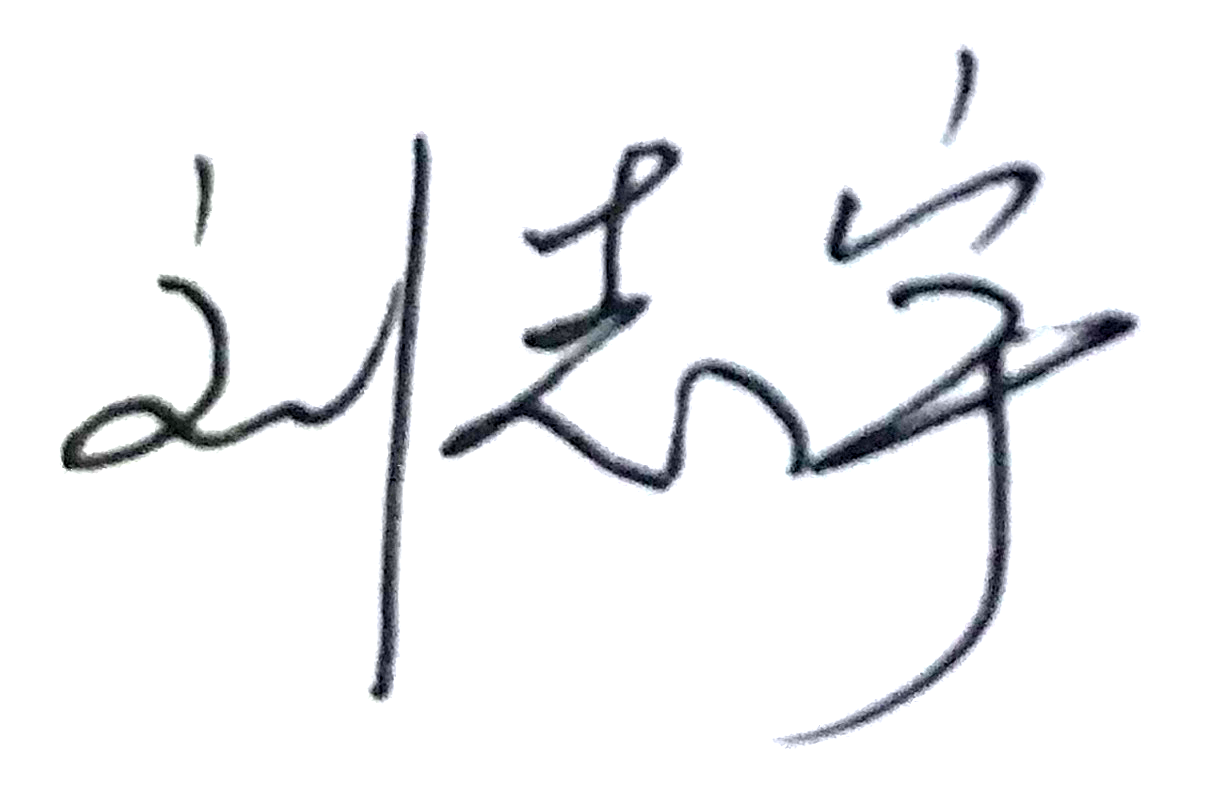 刘志宇